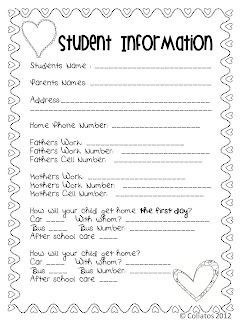 Student Information
Students Name : ____________________
Parents Names: ____________________
Address ____________________
____________________
Home Phone Number: ____________________
Fathers Work: ____________________
Fathers Work Number: ____________________
Fathers Cell Number: ____________________
Mothers Work: ____________________
Mothers Work Number: ____________________
Mothers Cell Number: ____________________
How will your child get home the first day?
Car ____ With whom? ____________________
Bus ____ Bus Number: ____________________
After school care ____
How will your child get home?
Car ____ With whom? ____________________
Bus ____ Bus Number: ____________________
After school care ____
© Collatos 2012